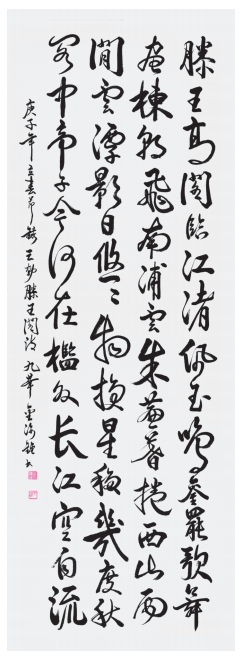 滕王高閣臨江渚佩玉鳴鸞罷歌舞
畫棟朝飛南浦雲朱簾暮捲西山雨
閒雲潭影日悠々物換星移幾度秋
閣中帝子今何在檻外长江空自流
庚子年立春 王勃滕王閣詩 九華